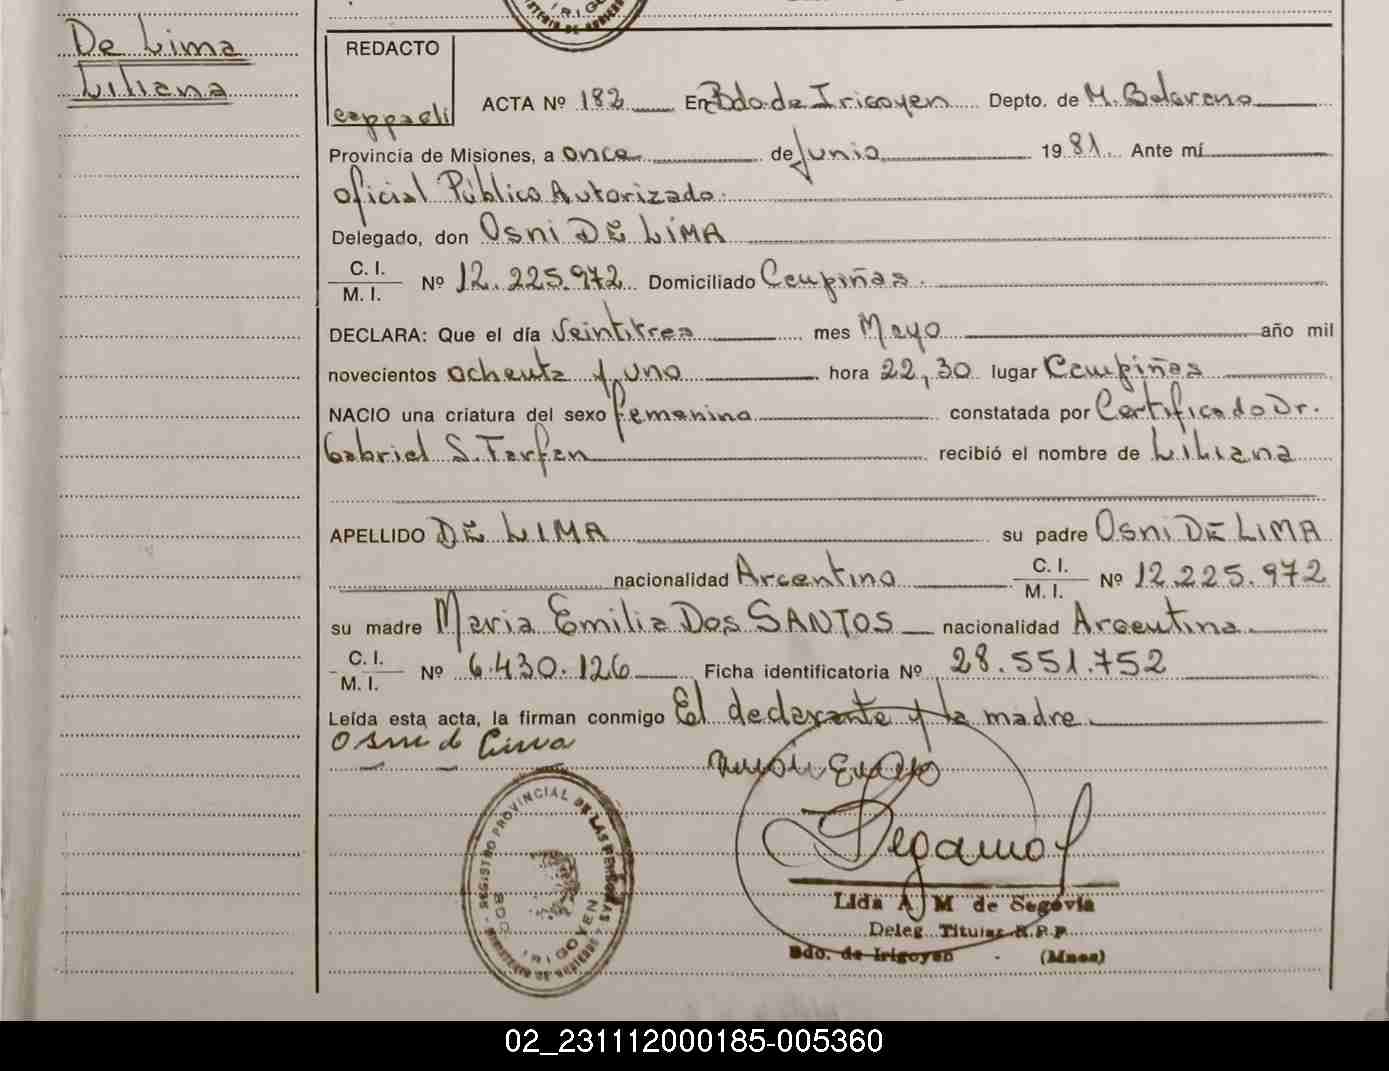 De Lima
Liliana
REDACTO
ACTA Nº 182 En Bdo. de Irigoyen Depto. de M. Belgrano
Provincia de Misiones, a once de Junio 1981. Ante mí
Oficial Público Autorizado.
Delegado, don Osni DE LIMA
C. I.
M. I. Nº 12.225.972 Domiciliado Campiñas.
DECLARA: Que el día Veintitres mes Mayo año mil
novecientos ochenta y uno hora 22,30 lugar Campiñas
NACIO una criatura del sexo femenino constatada por Certificado Dr.
Gabriel S. Farfan recibió el nombre de Liliana
APELLIDO DE LIMA su padre Osni DE LIMA
nacionalidad Argentino C. I. M. I. Nº 12.225.972
su madre Maria Emilia Dos SANTOS nacionalidad Argentina.
C. I.
M. I. Nº 6.430.126 Ficha identificatoria Nº 28.551.752
Leída esta acta, la firman conmigo El declarante y la madre.
Osni de Lima
REGISTRO PROVINCIAL DE LAS PERSONAS
IRIGOYEN
Lida A. M de Segovia
Deleg. Titular R.P.P
Bdo. de Irigoyen - (Mnes)
02_231112000185-005360